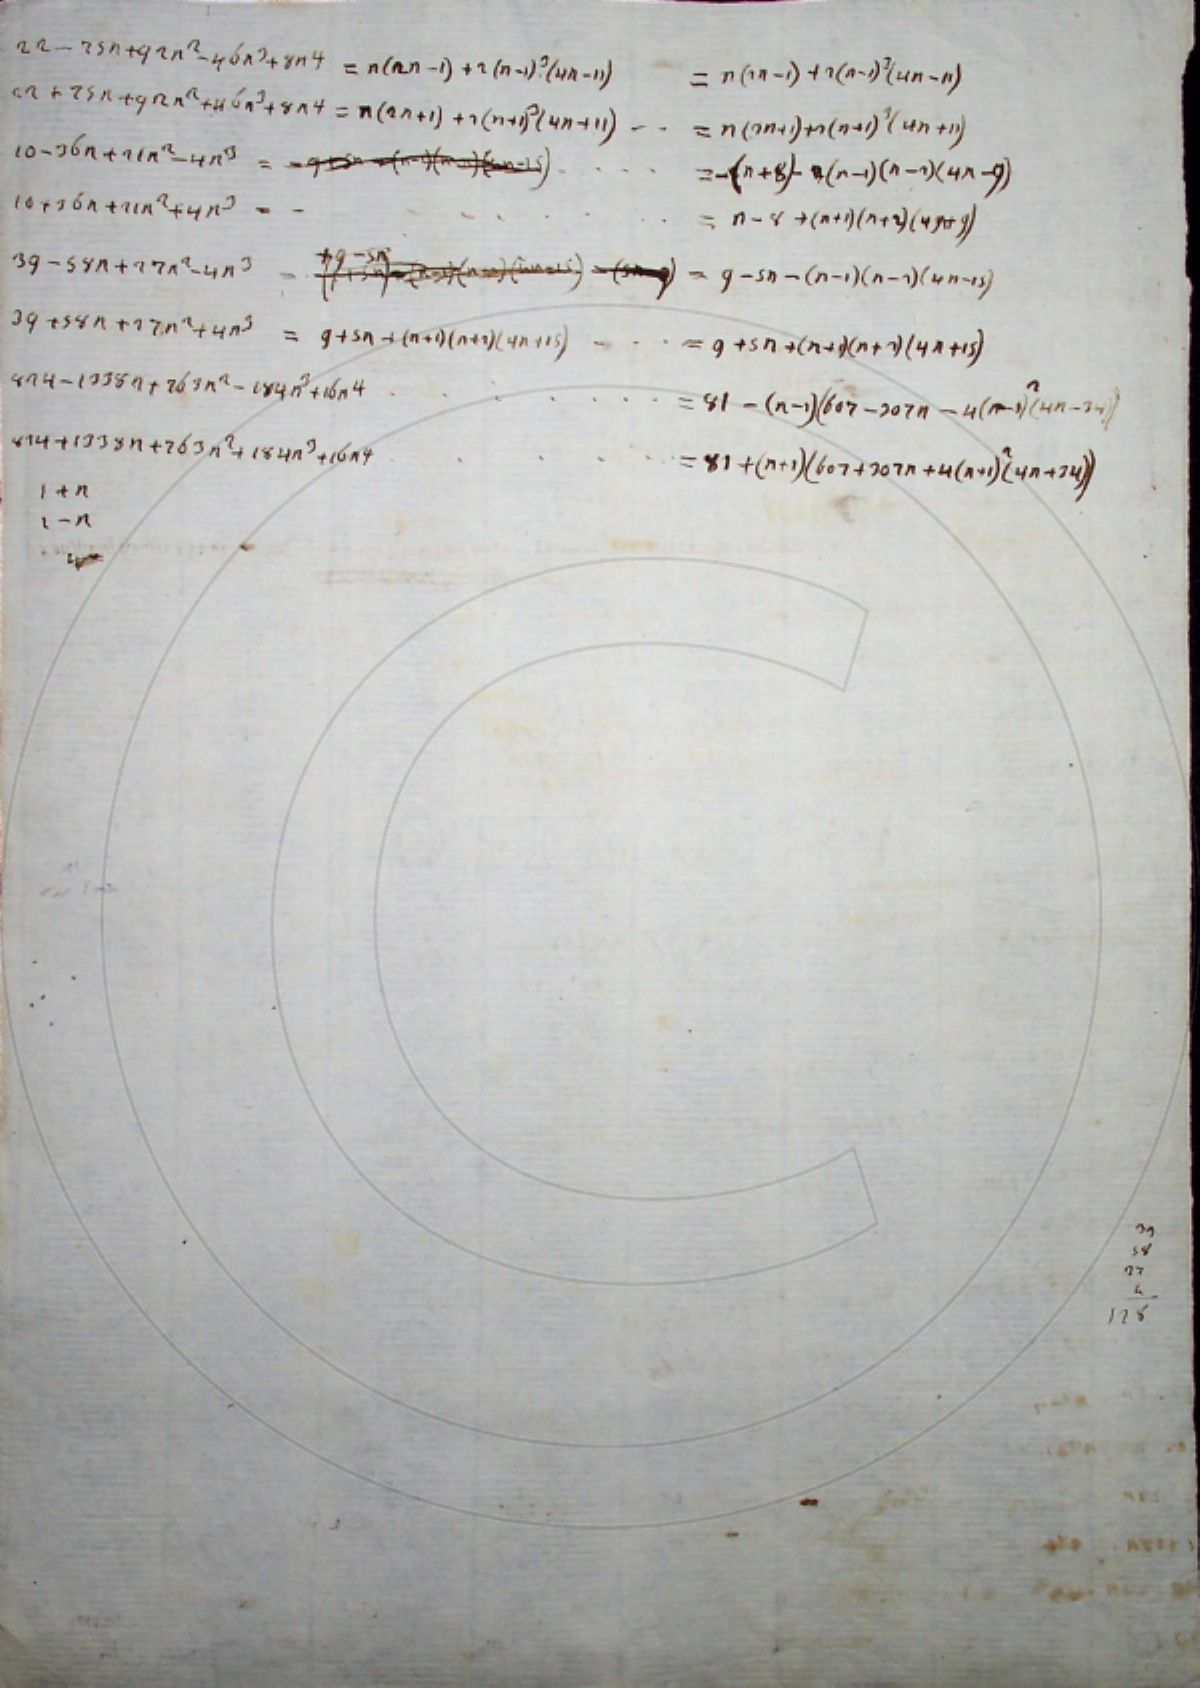 22 − 75n + 92n² − 46n³ + 8n⁴ = n(2n−1) + 2(n−1)³(4n−11) = n(2n−1) + 2(n−1)³(4n−11)
22 + 75n + 92n² + 46n³ + 8n⁴ = n(2n+1) + 2(n+1)³(4n+11) - - = n(2n+1) + 2(n+1)³(4n+11)
10 − 36n + 21n² − 4n³ = −9+5n−(n−1)(n−2)(4n−15) . . . . = −(n+8) − (n−1)(n−2)(4n−9)
10 + 36n + 21n² + 4n³ = - - . . . . = n − 8 + (n+1)(n+2)(4n+9)
+9−5n
39 − 58n + 27n² − 4n³ = = 9 − 5n − (n−1)(n−2)(4n−15)
39 + 58n + 27n² + 4n³ = 9+5n + (n+1)(n+2)(4n+15) - . . = 9 + 5n + (n+1)(n+2)(4n+15)
824 − 1338n + 763n² − 184n³ + 16n⁴ . . . . . . = 81 − (n−1)(607 − 307n − 4(n−1)²(4n−34))
824 + 1338n + 763n² + 184n³ + 16n⁴ . . . . . = 81 + (n+1)(607 + 307n + 4(n+1)²(4n+34))
1 + n
2 − n
39
58
27
4
128